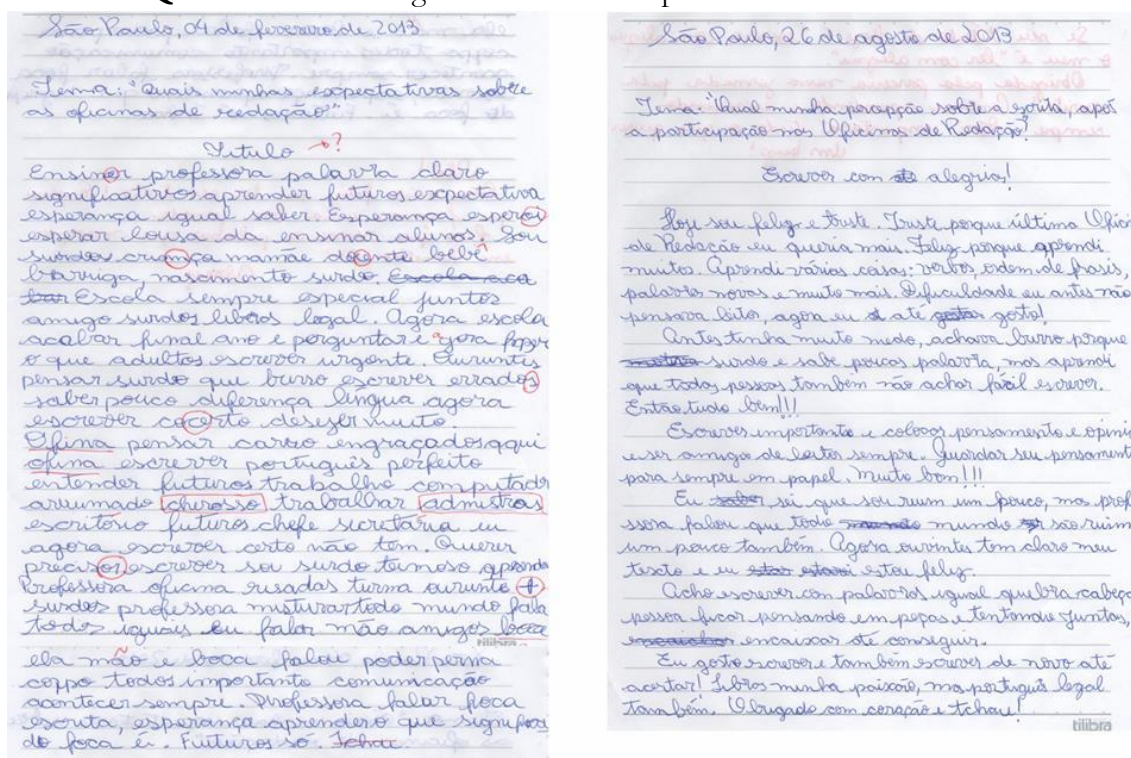 São Paulo, 04 de fevereiro de 2013
Tema: "Quais minhas expectativas sobre
as oficinas de redação"
Titulo →?
Ensiner professora palavra claro
significativos aprender futuros expectativa
esperança igual saber Esperança esperoi
esperar lousa da ensinar alunos. Sou
surdos criança mamãe doente bebê
barriga, nascimento surdo.
Escola sempre especial juntos
amigo surdos libras legal. Agora escola
acabar final ano e perguntar e agora
o que adultos escrever urgente.
pensar surdo que burro escrever errados
saber pouco diferença língua agora
escrever cocerto desejer muito.
Ofina pensar careo engraçados aqui
ofina escrever português perfeito
entender futuros trabalho computador
arrumado chirosso trabalhar admistras
escritório futuros chefe secretária eu
agora escrever certo não tem. Querer
precisoi escrever sou surdo tamoso
Professora oficina risadas turma ouvinte +
surdos professora misturar todo mundo fala
todos iguais eu falar mão amigos boca
ela mão e boca falou poder perna
corpo todos importante comunicação
acontecer sempre. Professora falar foca
escrita, esperança aprender o que significa
do foca é. Futuros só. Tchau
São Paulo, 26 de agosto de 2013
Tema: "Qual minha percepção sobre a escrita, após
a participação nas Oficinas de Redação?
Escrever com alegrias!
Hoje sou feliz e triste. Triste porque última Ofici
de Redação eu queria mais. Feliz porque aprendi
muitos. Aprendi várias coisas: verbos, ordem de frases,
palavras novas e muito mais. Dificuldade eu antes não
pensava, agora eu até gosto!
Antes tinha muito medo, achava burro porque
surdo e sabe poucas palavra, mas aprendi
que todas pessoas também não achar fácil escrever.
Então tudo bem!!!
Escrever importante e colocar pensamento e opini
e ser amigo de sempre. Guardar seu pensament
para sempre em papel. Muito bom!!!
Eu sei que sou ruim um pouco, mas prof
ssora falou que todo mundo são ruim
um pouco também. Agora ouvintes tem claro meu
texto e eu estou feliz.
Acho escrever com palavras igual quebra cabeça
pessoa ficar pensando em peças e tentando juntas,
encaixar até conseguir.
Eu gosto escrever e também escrever de novo até
acertar! Libras minha paixão, mas português legal
também. Obrigado com coração e tchau!
tilibra